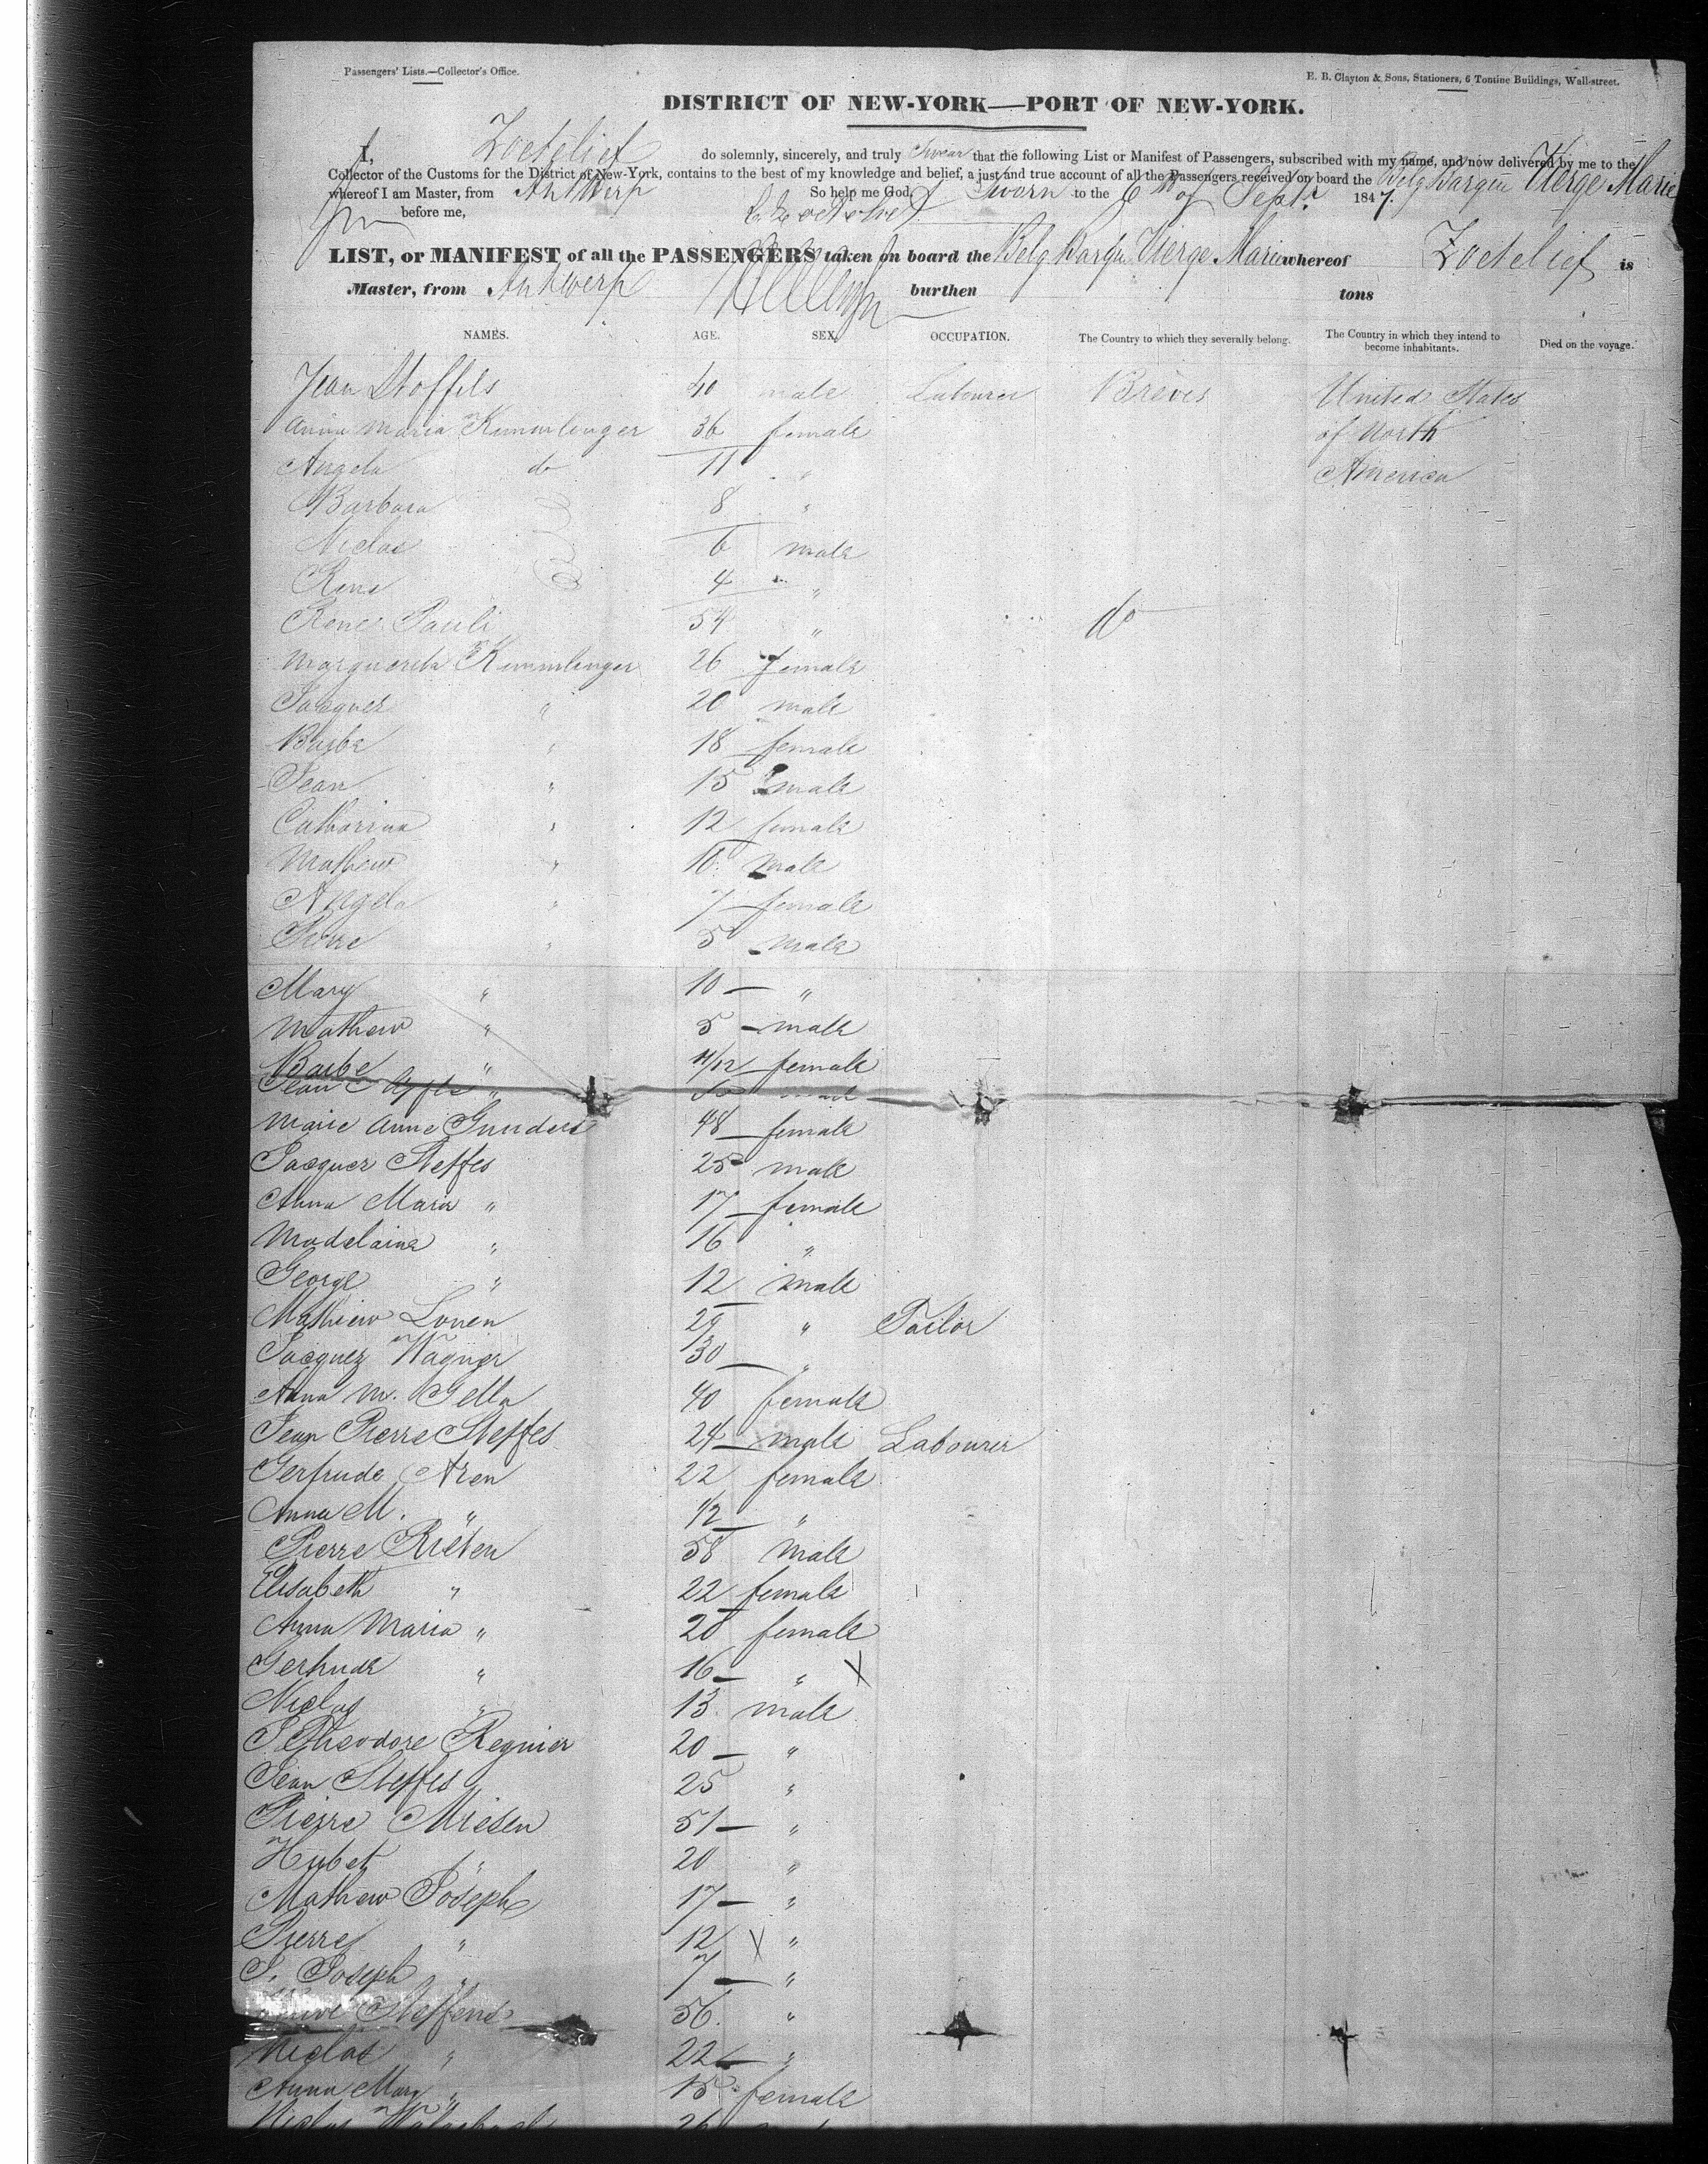 Passengers' Lists.—Collector's Office.
E. B. Clayton & Sons, Stationers, 6 Tontine Buildings, Wall-street.
DISTRICT OF NEW-YORK—PORT OF NEW-YORK.
I, Zoetelief do solemnly, sincerely, and truly Swear that the following List or Manifest of Passengers, subscribed with my name, and now delivered by me to the
Collector of the Customs for the District of New-York, contains to the best of my knowledge and belief, a just and true account of all the Passengers received on board the Belg Barque Vierge Marie
whereof I am Master, from Antwerp So help me God. Sworn to the 6th of Sept. 1847.
before me,
LIST, or MANIFEST of all the PASSENGERS taken on board the Belg Barque Vierge Marie whereof Zoetelief is
Master, from Antwerp burthen tons
NAMES. AGE. SEX. OCCUPATION. The Country to which they severally belong. The Country in which they intend to become inhabitants. Died on the voyage.
Jean Stoffels 40 male Labourer United States
Anna Maria Kimmlinger 36 female of North
Angela do 11 " America
Barbara 8 "
Niclas 6 male
Rene 4 "
Rene Pauli 54 " do
Marguereta Kimmlinger 26 female
Jacques " 20 male
Barbe " 18 female
Jean " 15 male
Catharina " 12 female
Mathew " 10 male
Angela " 7 female
Pierre " 5 male
Mary " 10 "
Mathew " 5 male
Barbe " 11/12 female
Jean "
Marie Anne 48 female
Jacques Steffes 25 male
Anna Maria " 17 female
Madelaine " 16 "
George " 12 male
Mathiew Lonen 29 " Tailor
Jacquez Wagner 30 "
Anna M. Gella 40 female
Jean Pierre Steffes 24 male Labourer
Gertrude Aren 22 female
Anna M. " 1/2 "
Pierre Rieten 58 male
Elisabeth " 22 female
Anna Maria " 20 female
Gertrude " 16 " X
Niclas " 13 male
J. Theodore Regnier 20 "
Jean Steffes 25 "
Pierre Miesen 51 "
Hubet " 20 "
Mathew Joseph 17 "
Pierre " 12 X "
J. Joseph " 7 "
Steffens 56 "
Niclas " 22 "
Anna Mary " 15 female
Niclas 26